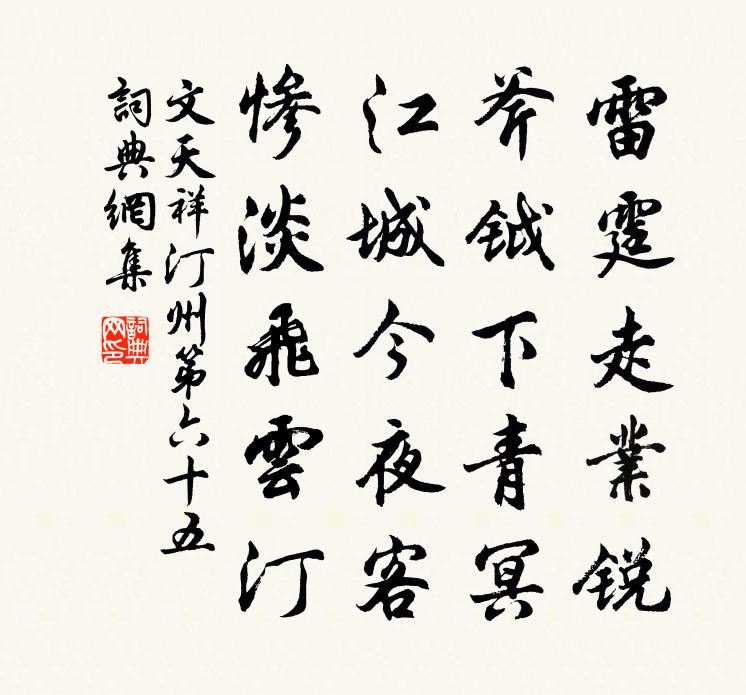 雷霆走業锐
斧钺下青冥
江城今夜客
慘淡飛雲汀
文天祥汀州第六十五
詞典網集
詞典网印